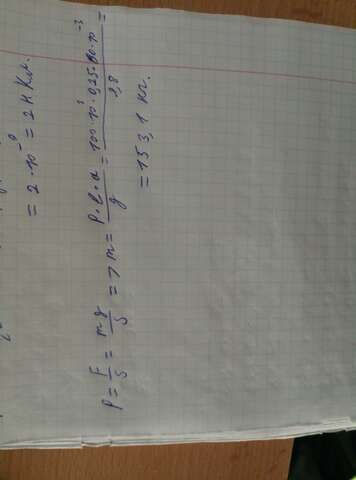 = 2 · 10⁻⁹ = 2 нКл.
P = F/S = mg/S => m = P·b·a/g = 100·10³·0,25·60·10⁻³/9,8 =
= 153,1 кг.